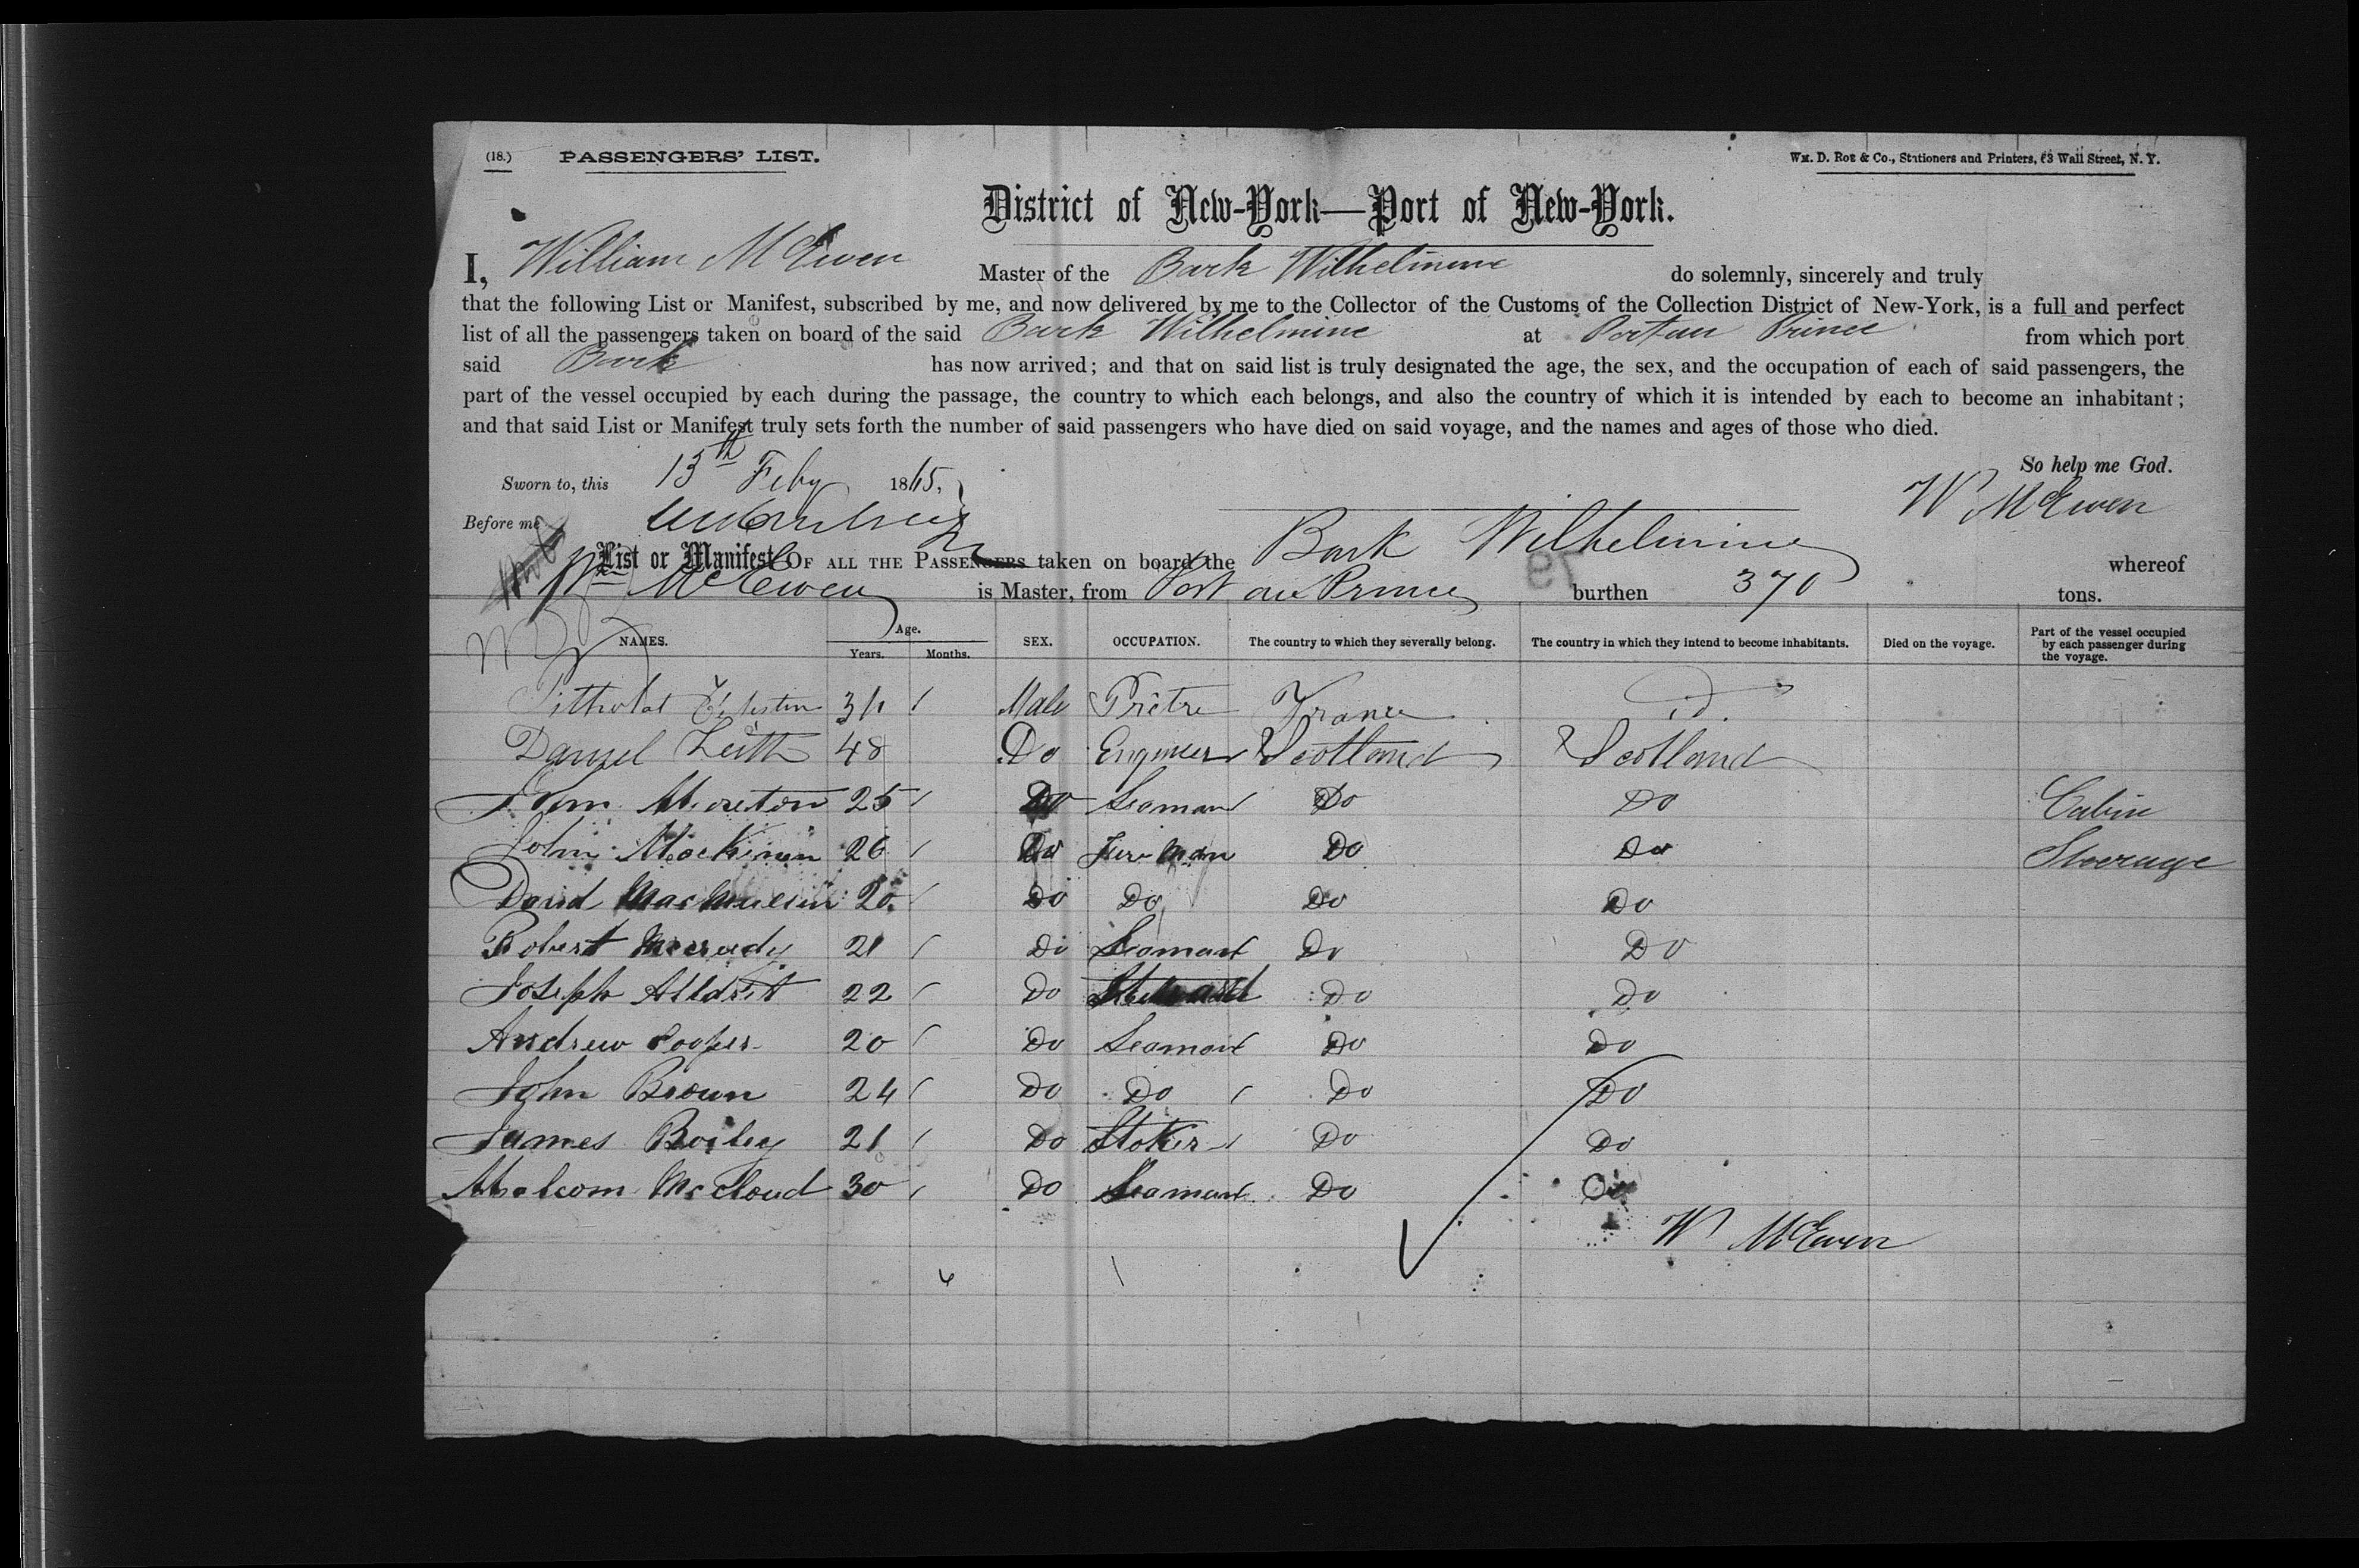 (18.) PASSENGERS' LIST. Wm. D. Roe & Co., Stationers and Printers, 63 Wall Street, N. Y.
District of New-York—Port of New-York.
I, William McEwen Master of the Bark Wilhelmine do solemnly, sincerely and truly
that the following List or Manifest, subscribed by me, and now delivered by me to the Collector of the Customs of the Collection District of New-York, is a full and perfect
list of all the passengers taken on board of the said Bark Wilhelmine at Port au Prince from which port
said Bark has now arrived; and that on said list is truly designated the age, the sex, and the occupation of each of said passengers, the
part of the vessel occupied by each during the passage, the country to which each belongs, and also the country of which it is intended by each to become an inhabitant;
and that said List or Manifest truly sets forth the number of said passengers who have died on said voyage, and the names and ages of those who died.
So help me God.
Sworn to, this 13th Feby 1865,
W McEwen
Before me
List or Manifest OF ALL THE PASSENGERS taken on board the Bark Wilhelmine whereof
Wm McEwen is Master, from Port au Prince burthen 370 tons.
NAMES. Age. Years. Months. SEX. OCCUPATION. The country to which they severally belong. The country in which they intend to become inhabitants. Died on the voyage. Part of the vessel occupied by each passenger during the voyage.
Male Prêtre France
Daniel Leith 48 Do Engineer Scotland Scotland
25 Do Seaman Do Do Cabin
John 26 Do Fireman Do Do Steerage
David MacMullin 20 Do Do Do Do
Robert Mccredy 21 Do Seaman Do Do
Joseph Alldrit 22 Do Do Do
Andrew Cooper 20 Do Seaman Do Do
John Brown 24 Do Do Do Do
James Boiley 21 Do Stoker Do Do
Malcom McCloud 30 Do Seaman Do
W McEwen